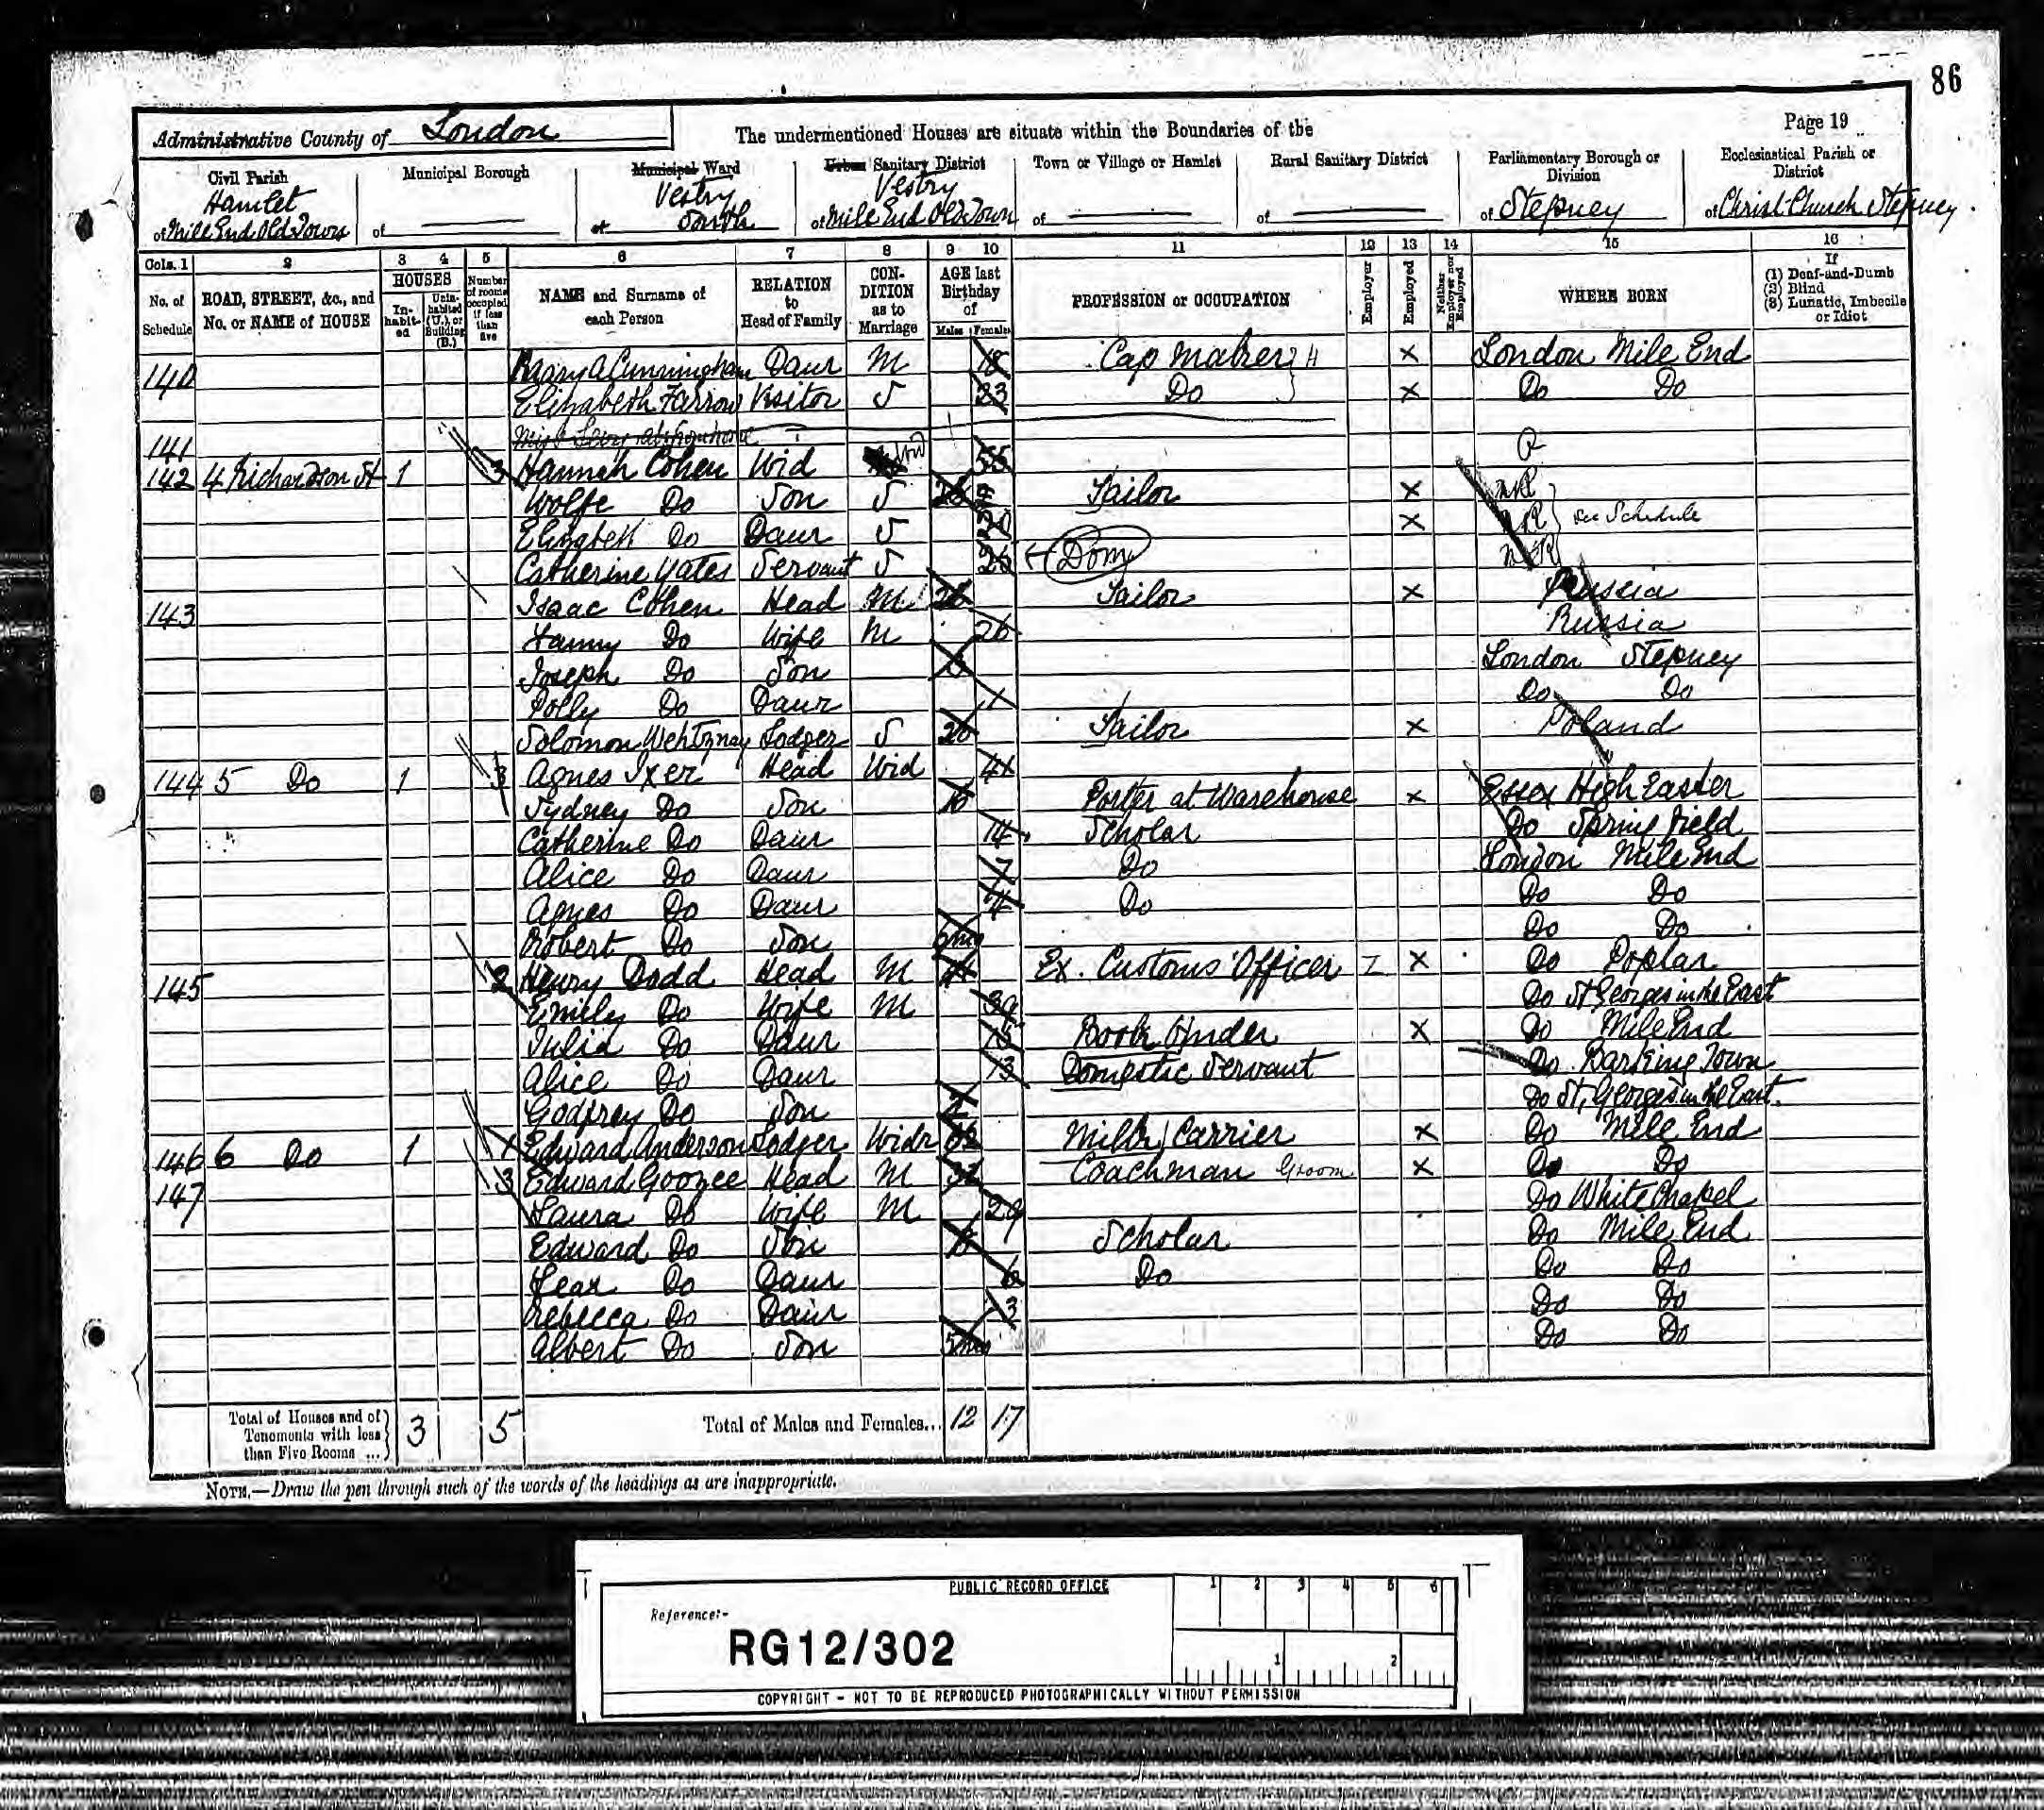 86
Administrative County of London
The undermentioned Houses are situate within the Boundaries of the
Page 19
Civil Parish
Hamlet
of Mile End Old Town
Municipal Borough
of
Municipal Ward
Vestry
of South
Urban Sanitary District
Vestry
of Mile End Old Town
Town or Village or Hamlet
of
Rural Sanitary District
of
Parliamentary Borough or Division
of Stepney
Ecclesiastical Parish or District
of Christ Church Stepney
Cols. 1 2 3 4 5 6 7 8 9 10 11 12 13 14 15 16
No. of Schedule
ROAD, STREET, &c., and No. or NAME of HOUSE
HOUSES
Inhabited
Uninhabited (U.), or Building (B.)
Number of rooms occupied if less than five
NAME and Surname of each Person
RELATION to Head of Family
CONDITION as to Marriage
AGE last Birthday of
Males Females
PROFESSION or OCCUPATION
Employer
Employed
Neither Employer nor Employed
WHERE BORN
If
(1) Deaf-and-Dumb
(2) Blind
(3) Lunatic, Imbecile or Idiot
140 Mary A Cunningham Daur M 18 Cap Maker H X London Mile End
Elizabeth Farrow Visitor S 23 Do X Do Do
141
142 4 Richardson St 1 3 Hannah Cohen Wid Wid 55 R
Wolfe Do Son S Tailor X NK
Elizabeth Do Daur S 20 X NK See Schedule
Catherine Yates Servant S 25 Dom NK
143 Isaac Cohen Head M 26 Tailor X Russia
Fanny Do Wife M 26 Russia
Joseph Do Son London Stepney
Polly Do Daur 1 Do Do
Solomon Lodger S 20 Tailor X Poland
144 5 Do 1 3 Agnes Ixer Head Wid 41 Essex High Easter
Sydney Do Son 16 Porter at Warehouse X Do Springfield
Catherine Do Daur 14 Scholar London Mile End
Alice Do Daur 7 Do Do Do
Agnes Do Daur 4 Do Do Do
Robert Do Son Do Poplar
145 2 Henry Dodd Head M 41 Ex. Customs Officer X Do St Georges in the East
Emily Do Wife M 39 Do Mile End
Julia Do Daur 15 Book Binder X Do Barking Town
Alice Do Daur 13 Domestic Servant Do St, Georges in the East.
Godfrey Do Son Do Mile End
146 6 Do 1 1 Edward Anderson Lodger Widr 62 Milk Carrier X Do Do
147 3 Edward Goozee Head M 32 Coachman Groom X Do White Chapel
Laura Do Wife M 29 Do Mile End
Edward Do Son Scholar Do Do
Leax Do Daur 6 Do Do Do
Rebecca Do Daur 3 Do Do
Albert Do Son 5mo
Total of Houses and of Tenements with less than Five Rooms ... 3 5
Total of Males and Females... 12 17
NOTE.—Draw the pen through such of the words of the headings as are inappropriate.
PUBLIC RECORD OFFICE
1 2 3 4 5 6
Reference:-
RG12/302
1 2
COPYRIGHT - NOT TO BE REPRODUCED PHOTOGRAPHICALLY WITHOUT PERMISSION